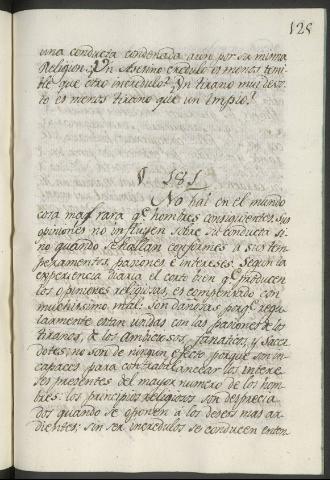 125
una conducta condenada aun por su misma
Religion. ¿Un Asesino credulo es menos temi-
ble que otro incredulo? ¿Un tirano muy devo-
to es menos tirano que un Impio?
§ 181
No hai en el mundo
cosa mas rara q.e hombres consiguientes, sus
opiniones no influyen sobre su conducta si-
no quando se hallan conformes a sus tem-
peramentos, pasiones e intereses. Segun la
experiencia diaria el corto bien q.e producen
las opiniones religiosas, es compensado con
muchisimo mal: Son dañosas porq.e regu-
larmente estan unidas con las pasiones de los
tiranos, de los ambiciosos, fanaticos, y Sacer-
dotes; no son de ningun efecto porque son in-
capaces para contrabalancear los intere-
ses presentes del mayor numero de los hom-
bres: los principios religiosos son desprecia-
dos quando se oponen a los deseos mas ar-
dientes; sin ser incredulos se conducen enton-